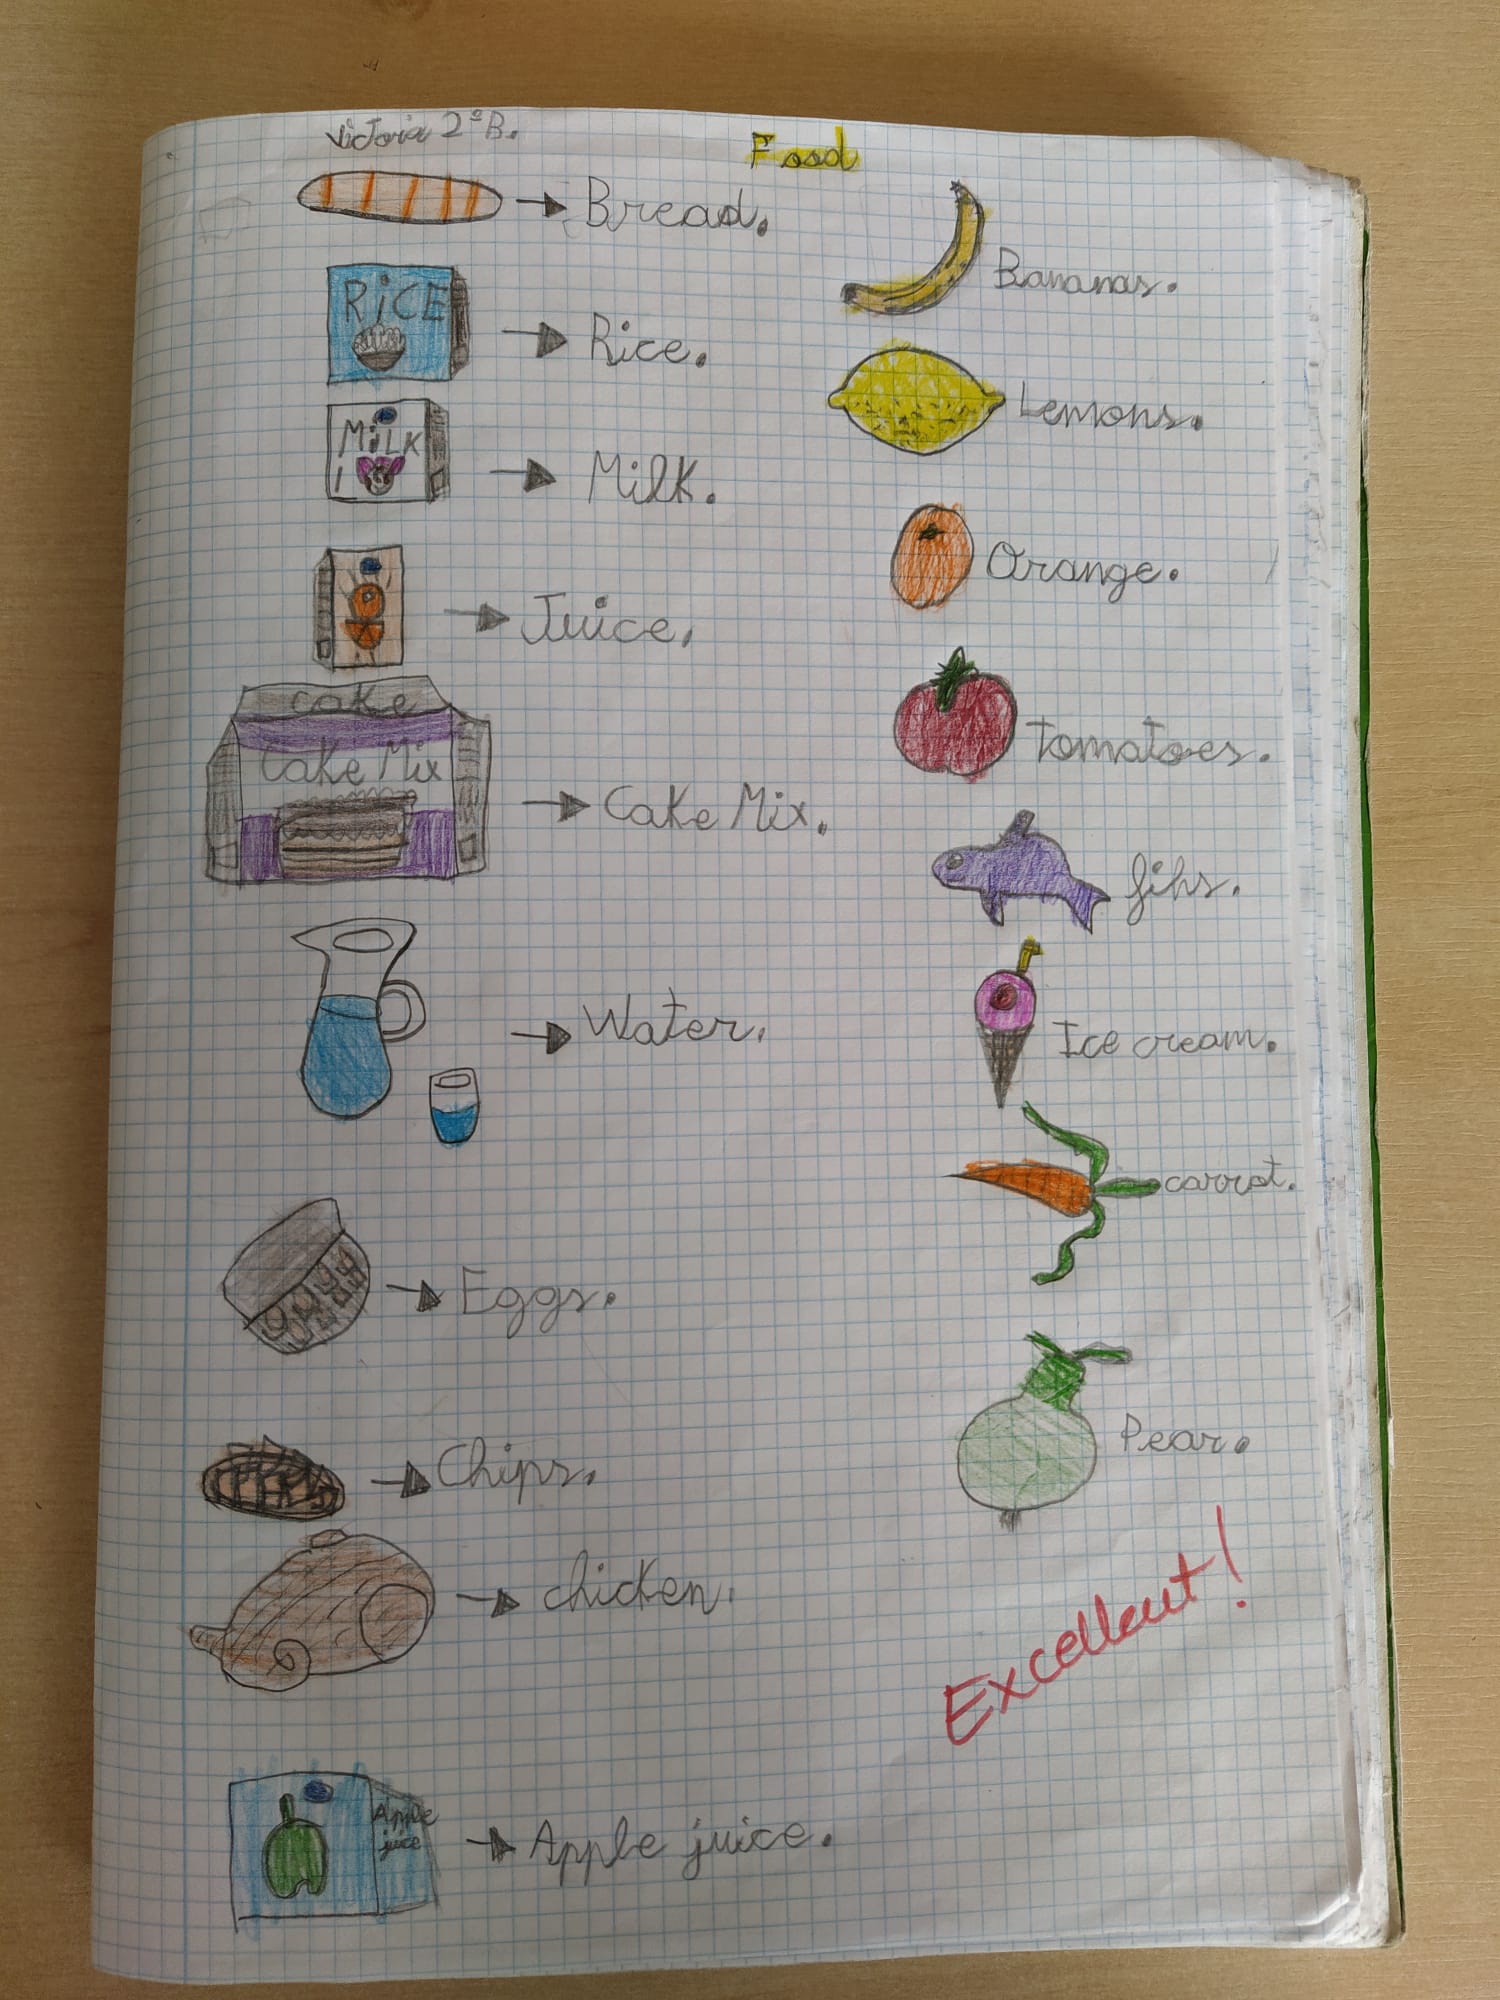 Victoria 2ºB.
Food
Bread.
RiCE
Rice.
MiLK
Milk.
Juice.
cake
Cake Mix
Cake Mix.
Water.
Eggs.
Chips.
chicken.
Apple
juice
Apple juice.
Bananas.
Lemons.
Orange.
Tomatoes.
fihs.
Ice cream.
carrot.
Pear.
Excellent!